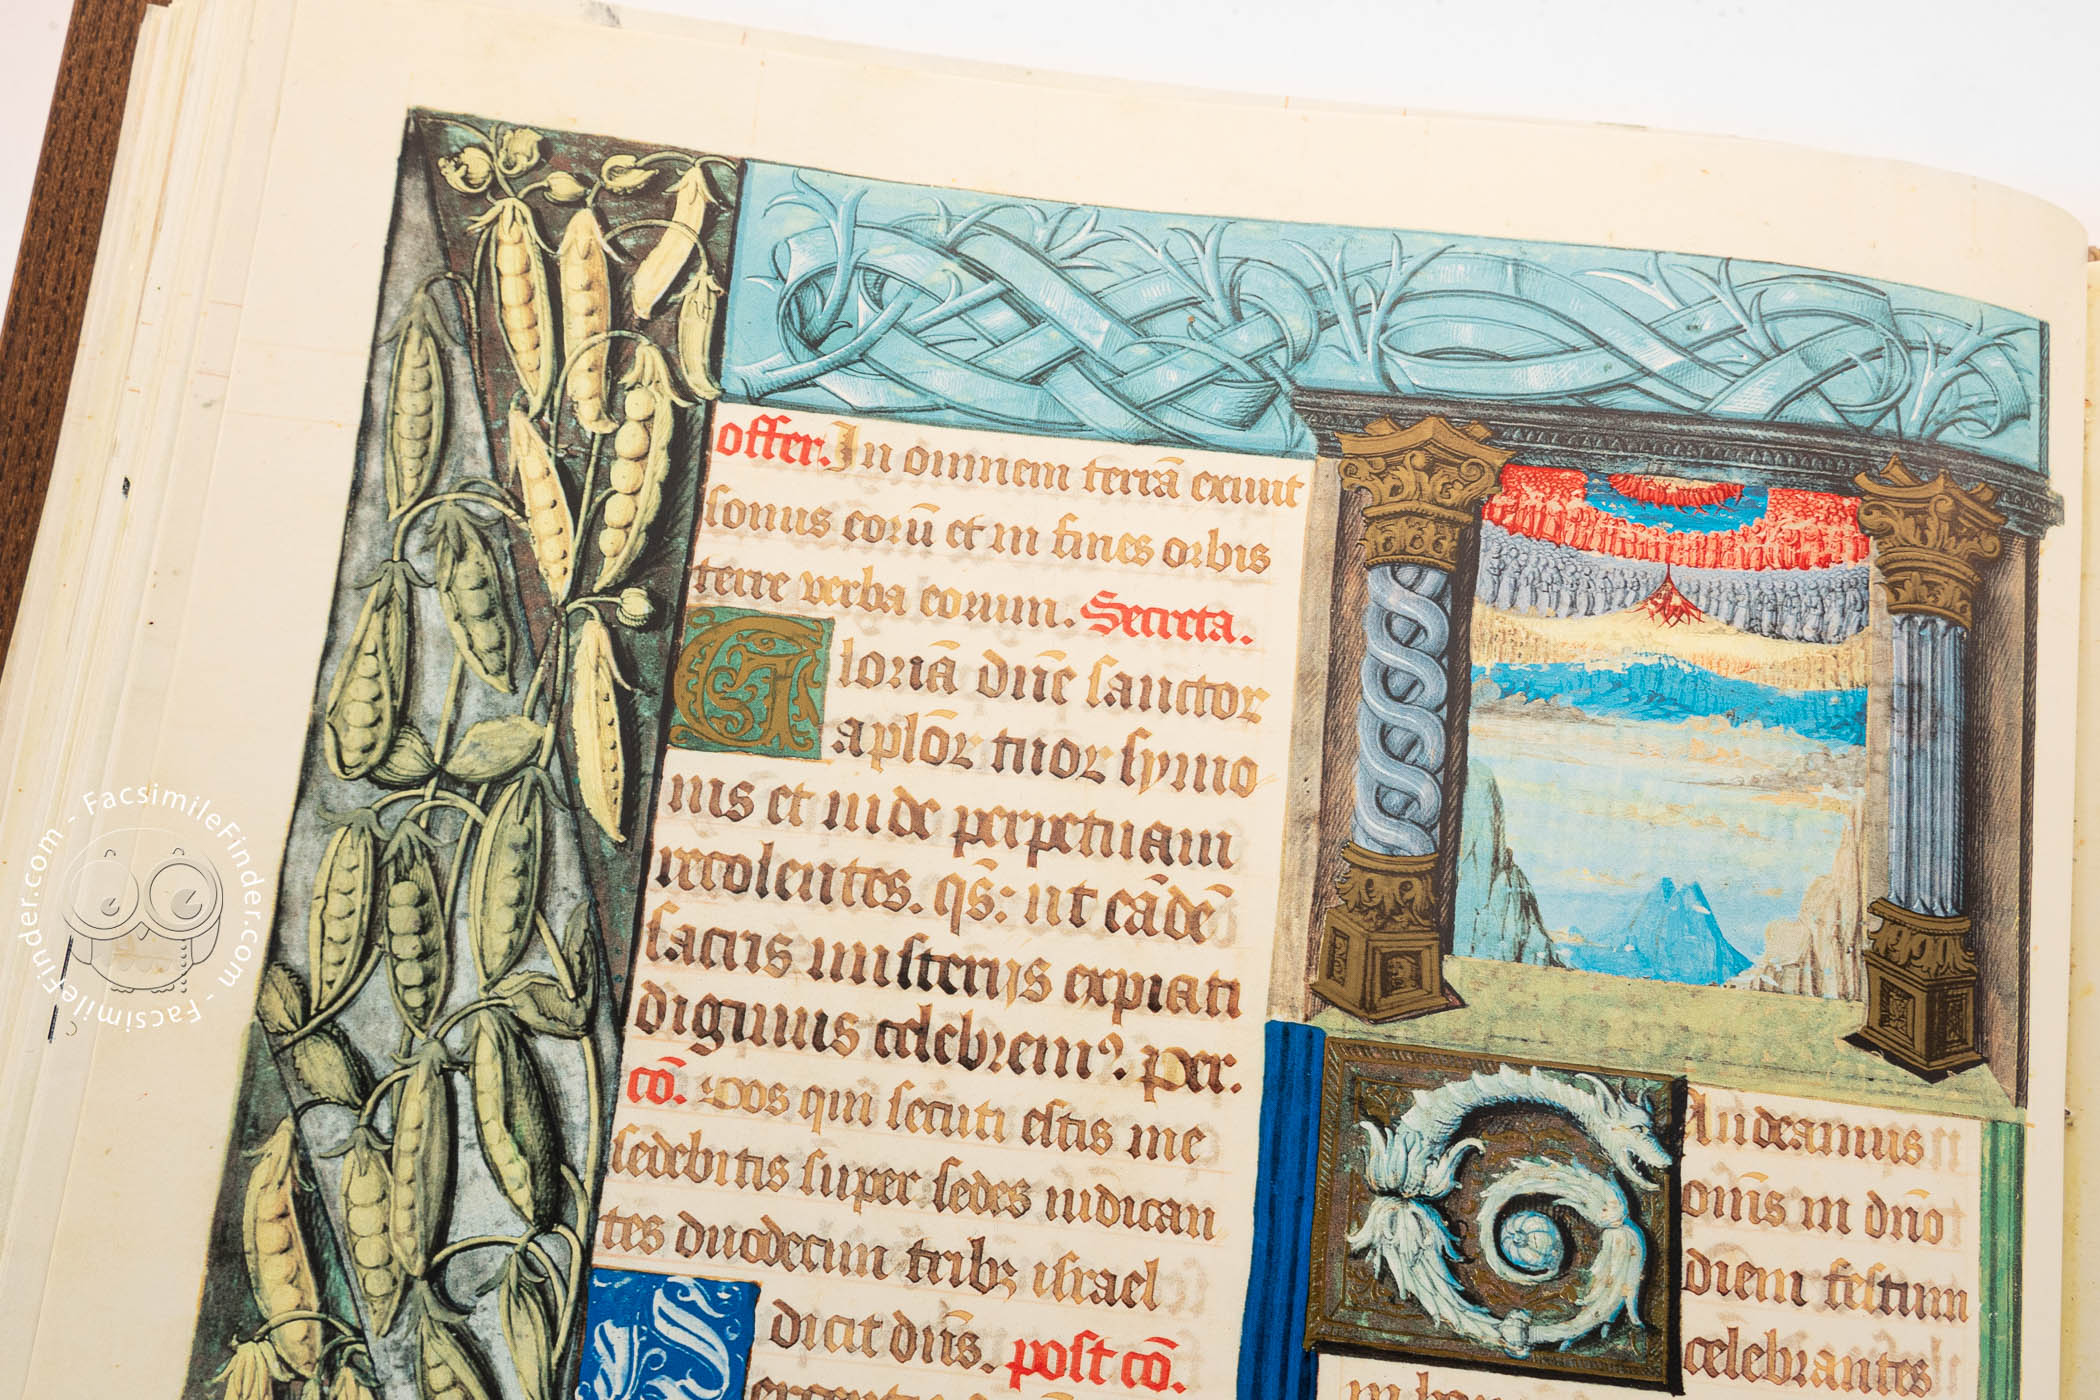 offer. In omnem terrā exiuit
sonus eorū et in fines orbis
terre verba eorum. Secreta.
Gloriā dn̄e sanctoꝝ
aplōꝝ tuoꝝ symo
nis et iude perpetuam
recolentes. qs̄: ut eādē
sacris misterijs expiati
dignius celebrem? per.
cō. Vos qui secuti estis me
sedebitis super sedes iudican
tes duodecim tribꝫ israel
dicit dn̄s. post cō.
Gaudeamus
om̄s in dn̄o
diem festum
celebrantes
FacsimileFinder.com - FacsimileFinder.com - FacsimileFinder.com